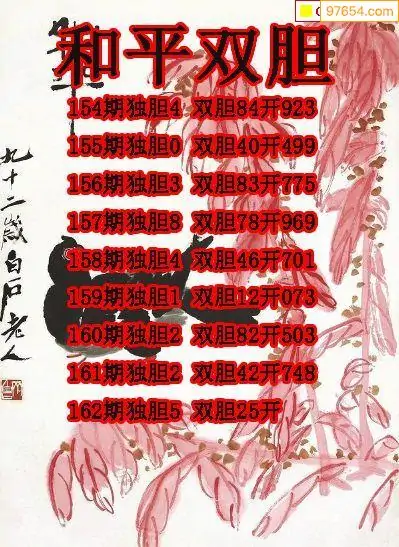 97654.com
和平双胆
154期独胆4 双胆84开923
155期独胆0 双胆40开499
156期独胆3 双胆83开775
157期独胆8 双胆78开969
158期独胆4 双胆46开701
159期独胆1 双胆12开073
160期独胆2 双胆82开503
161期独胆2 双胆42开748
162期独胆5 双胆25开
九十二岁白石老人